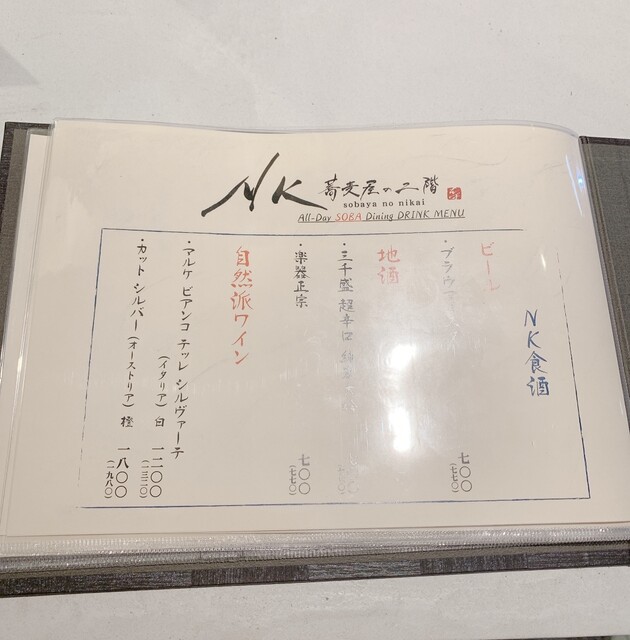 NK 蕎麦屋の二階
sobaya no nikai
All-Day SOBA Dining DRINK MENU
NK食酒
ビール
・ブラウ
七〇〇
(七七〇)
地酒
・三千盛 超辛口 純米
・楽器正宗
七〇〇
(七七〇)
自然派ワイン
・マルケ ビアンコ テッレ シルヴァーテ
(イタリア) 白 一二〇〇
(一三二〇)
・カット シルバー (オーストリア) 橙 一八〇〇
(一九八〇)